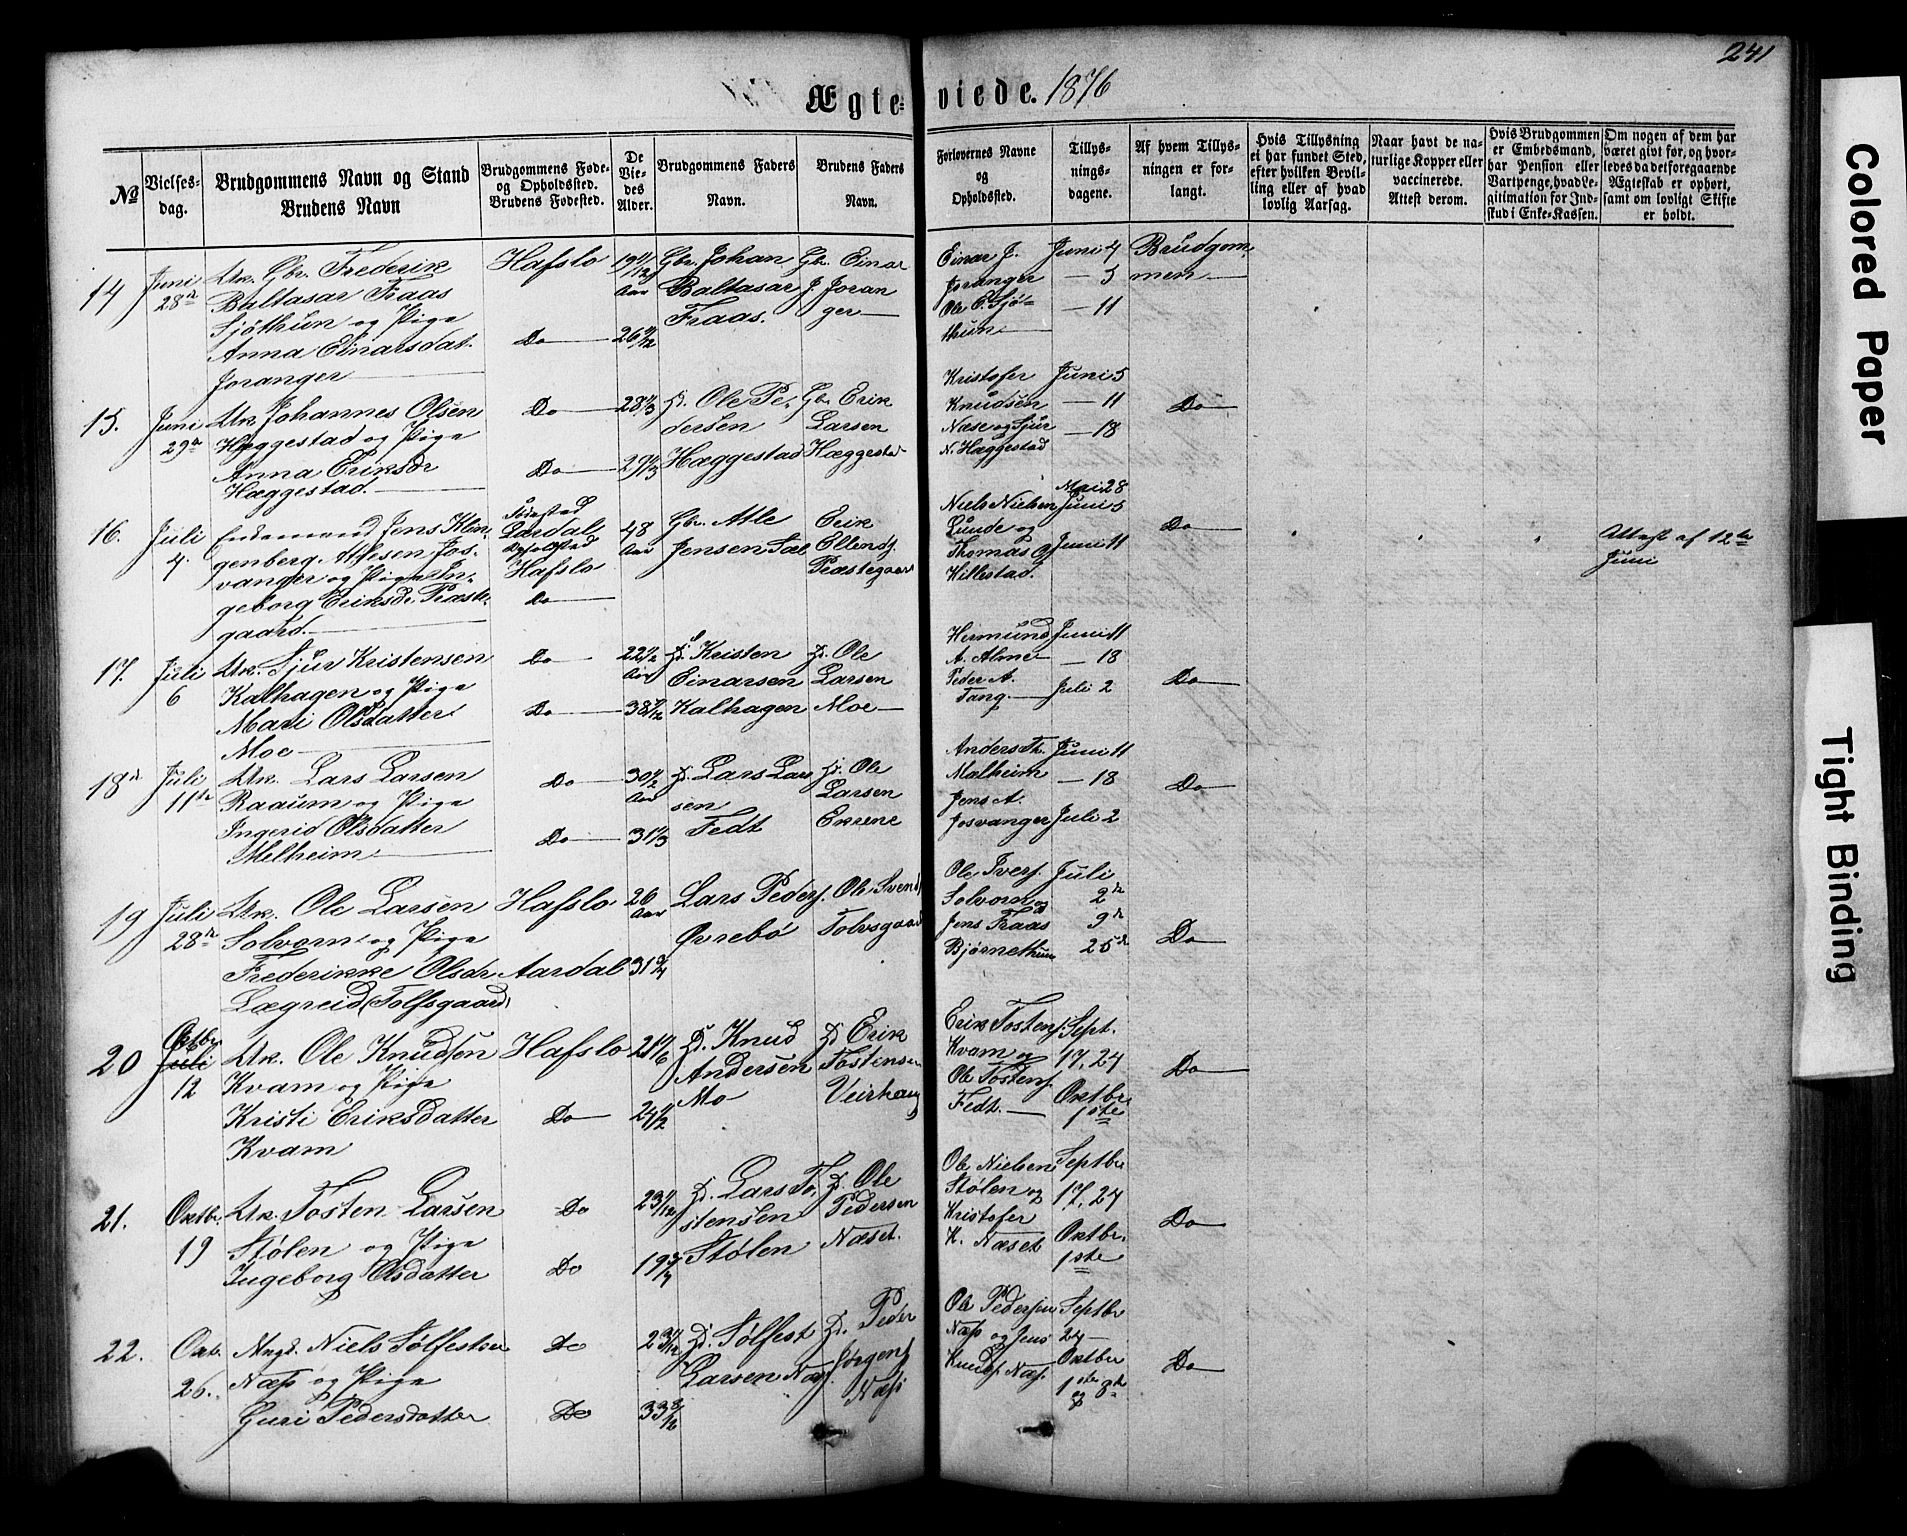 241
Ægteviede. 1876
№
Vielsesdag.
Brudgommens Navn og Stand
Brudens Navn
Brudgommens Føde- og Opholdssted.
Brudens Fødested.
De Viedes Alder.
Brudgommens Faders Navn.
Brudens Faders Navn.
Forlovernes Navne og Opholdssted.
Tillysningsdagene.
Af hvem Tillysningen er forlangt.
Hvis Tillysning ei har fundet Sted, efter hvilken Bevilling eller af hvad lovlig Aarsag.
Naar havt de naturlige Kopper eller vaccinerede. Attest derom.
Hvis Brudgommen er Embedsmand, har Pension eller Vartpenge, hvad Legitimation for Indskud i Enke-Kassen.
Om nogen af dem har været gift før, og hvorledes da det foregaaende Ægteskab er ophørt, samt om lovligt Skifte er holdt.
14 Juni 28de
Uk. Gbr. Frederik
Baltasar Fraas
Sjøthun og Pige
Anna Einarsdat.
Joranger
Hafslo
Do
19 11/12 Aar
Gbr. Johan
Baltasar
Fraas.
Gb. Einar
J. Joranger
Einar J.
Joranger
Ole E. Sjøthun
Juni 4
— 5
— 11
Brudgommen
15. Juni 29de
Uk. Johannes Olsen
Hæggestad og Pige
Anna Eriksdr
Hæggestad.
Do
Do
Ole Pedersen
Hæggestad
Gbr. Erik
Larsen
Hæggestad
Kristofer
Knudsen
Næse og Sjur
N. Hæggestad
Juni 5
— 11
— 18
Do
16. Juli 4.
Enkemand Jens Klingenberg
Atlesen Josvanger
og Pige Ingeborg
Eriksdr. Præstegaard.
Fødested
Lærdal
Opholdsted
Hafslo
Do
48 Aar
Gbr. Atle
Jensen
Erik
Ellends.
Præstegaard
Niels Nielsen
Lunde og
Thomas
Hillestad.
Mai 28
Juni 5
Juni 11
Do
Attest af 12te
Juni
17. Juli 6
Uk. Sjur Kristensen
Kalhagen og Pige
Mari Olsdatter
Moe
Do
Do
38 7/12
Kristen
Einarsen
Kalhagen
Ole
Larsen
Moe
Hermund
A. Alme
Peder A.
Tang.
Juni 11
— 18
Juli 2
Do
18de Juli 11te
Uk. Lars Larsen
Raaum og Pige
Ingerid Olsdatter
Melheim
Do
Do
Lars Larsen
Fedt
Ole
Larsen
Anders Th.
Malheim
Jens A.
Josvanger
Juni 11
— 18
Juli 2
Do
19 Juli 28de
Uk. Ole Larsen
Solvorn og Pige
Frederikke Olsdr
Lægreid (Tolfsgaard)
Hafslo
Aardal
26 Aar
Lars Peders.
Øvrebø
Ole Svends
Tolvsgaard
Ole Ivers.
Solvorn og
Jens Fraas
Bjørnethun
Juli
2de
9de
25de
Do
20 Oktbr. Juli 12
Uk. Ole Knudsen
Kvam og Pige
Kristi Eriksdatter
Kvam
Hafslo
Do
21 1/6
24 1/2
Knud
Andersen
Mo
Erik
Tostensen
Veirhaug
Erik Tostens.
Kvam og
Ole Tostens.
Fedt.
Sept.
17, 24
Oktbr
1ste
Do
21. Oktbr. 19
Uk. Tosten Larsen
Stølen og Pige
Ingeborg Olsdatter
Do
Do
Lars Tostensen
Stølen
Ole
Pedersen
Næset.
Ole Nielsen
Stølen og
Kristofer
K. Næset
Septbr
17, 24
Oktbr.
1ste
Do
22. Okt. 26.
Ungk. Niels Sølfestsen
Næss og Pige
Guri Pedersdatter
Do
Do
Sølfest
Larsen Næss
Peder
Jørgens
Næss
Ole Pedersen
Næss og Jens
Knuds. Næss.
Septbr
24
Oktbr
1ste og 8de
Do
Colored Paper
Tight Binding